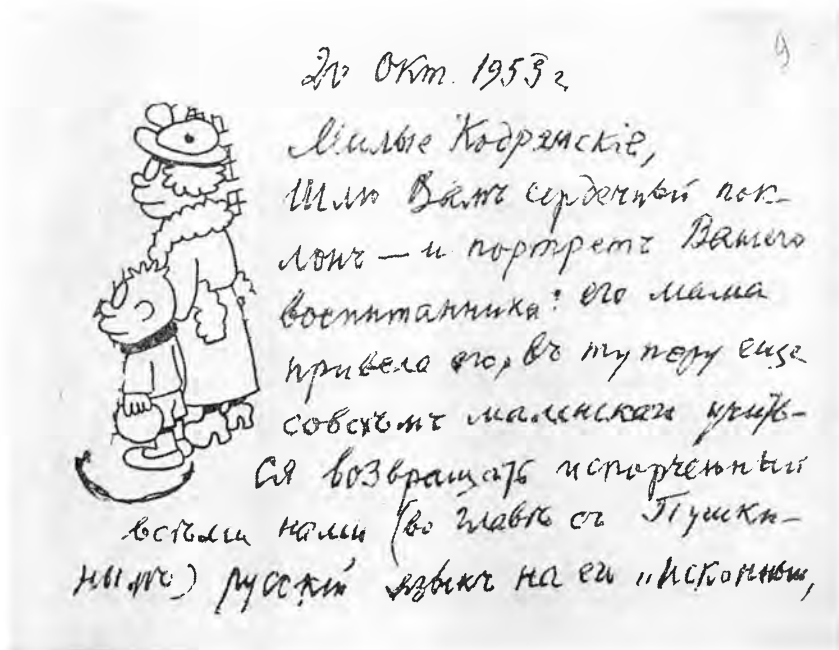 9
20 Окт. 1953 г.
Милые Кодрянскіе,
Шлю Вамъ сердечный пок-
лонъ — и портретъ Вашего
воспитанника: его мама
привела его, въ ту пору еще
совсѣмъ маленькаго учить-
ся возвращать испорченный
всѣми нами (во главѣ съ Пушки-
нымъ) русскій языкъ на его „исконный,